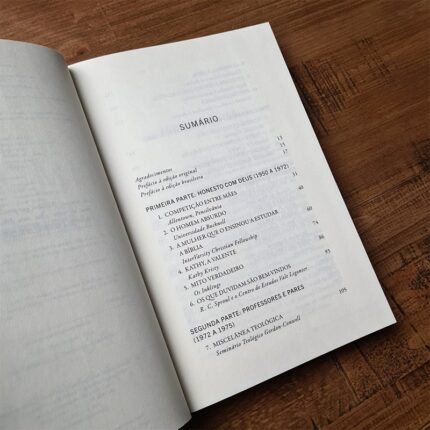 SUMÁRIO
Agradecimentos 13
Prefácio à edição original 15
Prefácio à edição brasileira 17
PRIMEIRA PARTE: HONESTO COM DEUS (1950 A 1972)
1. COMPETIÇÃO ENTRE MÃES 31
Allentown, Pensilvânia
2. O HOMEM ABSURDO 40
Universidade Bucknell
3. A MULHER QUE O ENSINOU A ESTUDAR 60
A BÍBLIA
InterVarsity Christian Fellowship
4. KATHY, A VALENTE 74
Kathy Kristy
5. MITO VERDADEIRO 86
Os Inklings
6. OS QUE DUVIDAM SÃO BEM-VINDOS 93
R. C. Sproul e o Centro de Estudos Vale Ligonier
SEGUNDA PARTE: PROFESSORES E PARES
(1972 A 1975)
7. MISCELÂNEA TEOLÓGICA 105
Seminário Teológico Gordon-Conwell